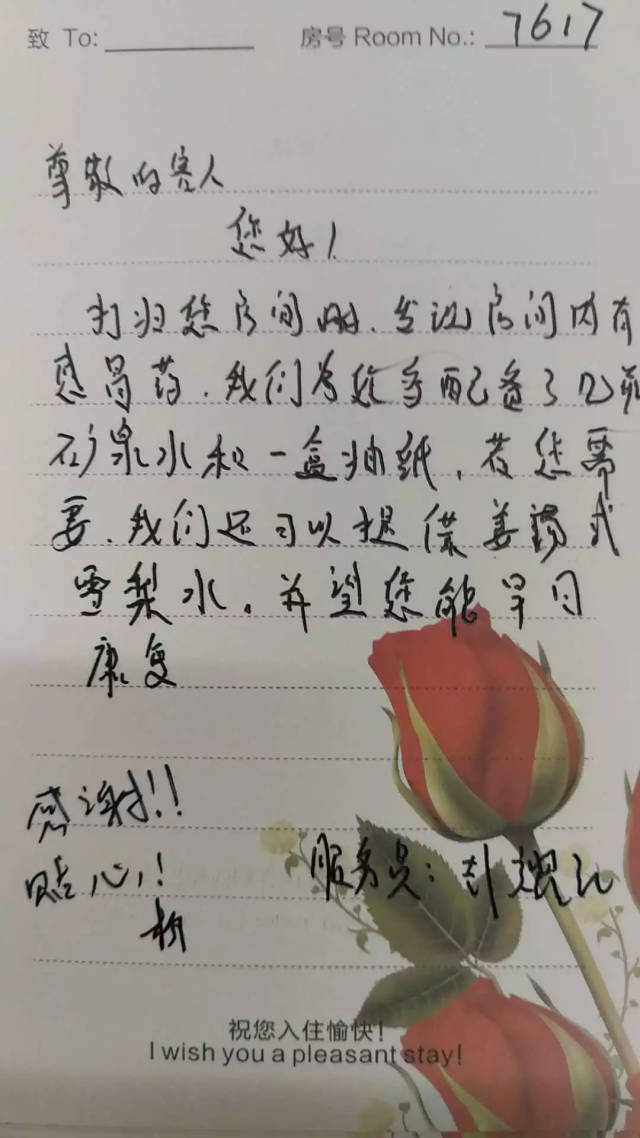 致 To: 房号 Room No.: 7617
尊敬的客人
您好!
打扫您房间时,发现房间内有
感冒药,我们为您多配备了几瓶
矿泉水和一盒抽纸,若您需
要,我们还可以提供姜汤或
雪梨水,希望您能早日
康复
感谢!!
贴心!
服务员:
祝您入住愉快!
I wish you a pleasant stay!